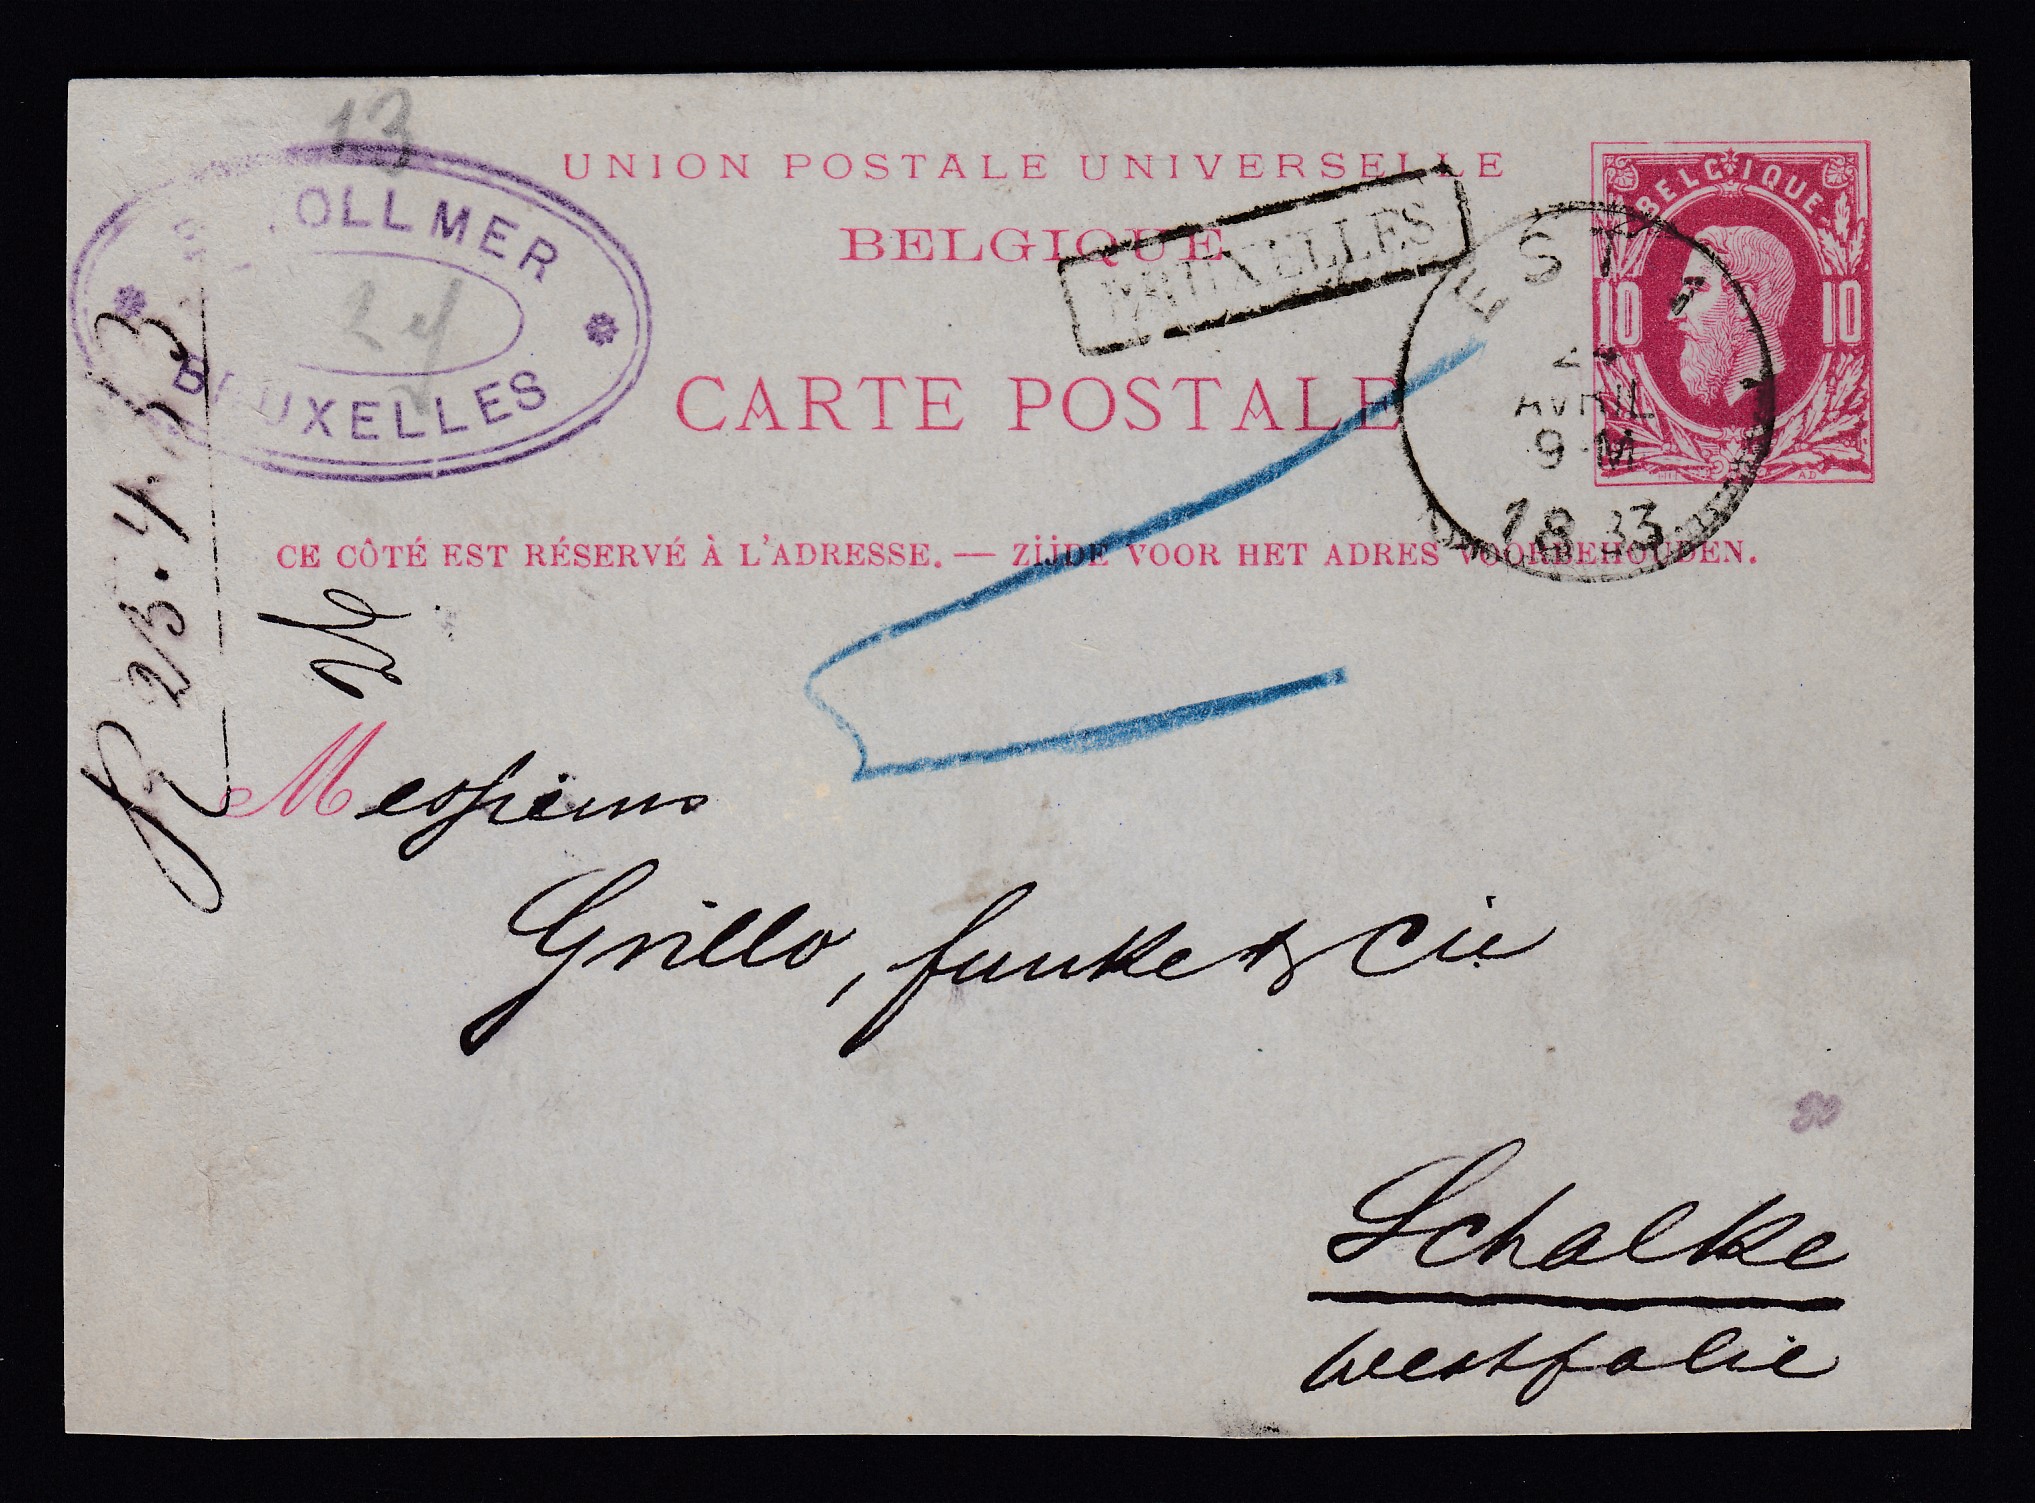 13
UNION POSTALE UNIVERSELLE
BELGIQUE
BRUXELLES
BELGIQUE
10 10
OLLMER
24
BRUXELLES
CARTE POSTALE
EST 1
AVRIL
9-M
CE CÔTÉ EST RÉSERVÉ À L'ADRESSE. — ZIJDE VOOR HET ADRES VOORBEHOUDEN.
R 23.4.83
Messieurs
Grillo, Funke & Cie
Schalke
Westfalie